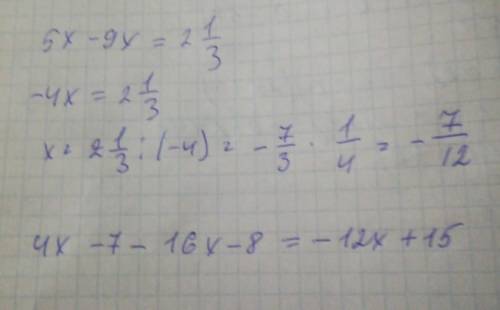 5x - 9x = 2 1/3
-4x = 2 1/3
x = 2 1/3 : (-4) = - 7/3 · 1/4 = - 7/12
4x - 7 - 16x - 8 = -12x + 15